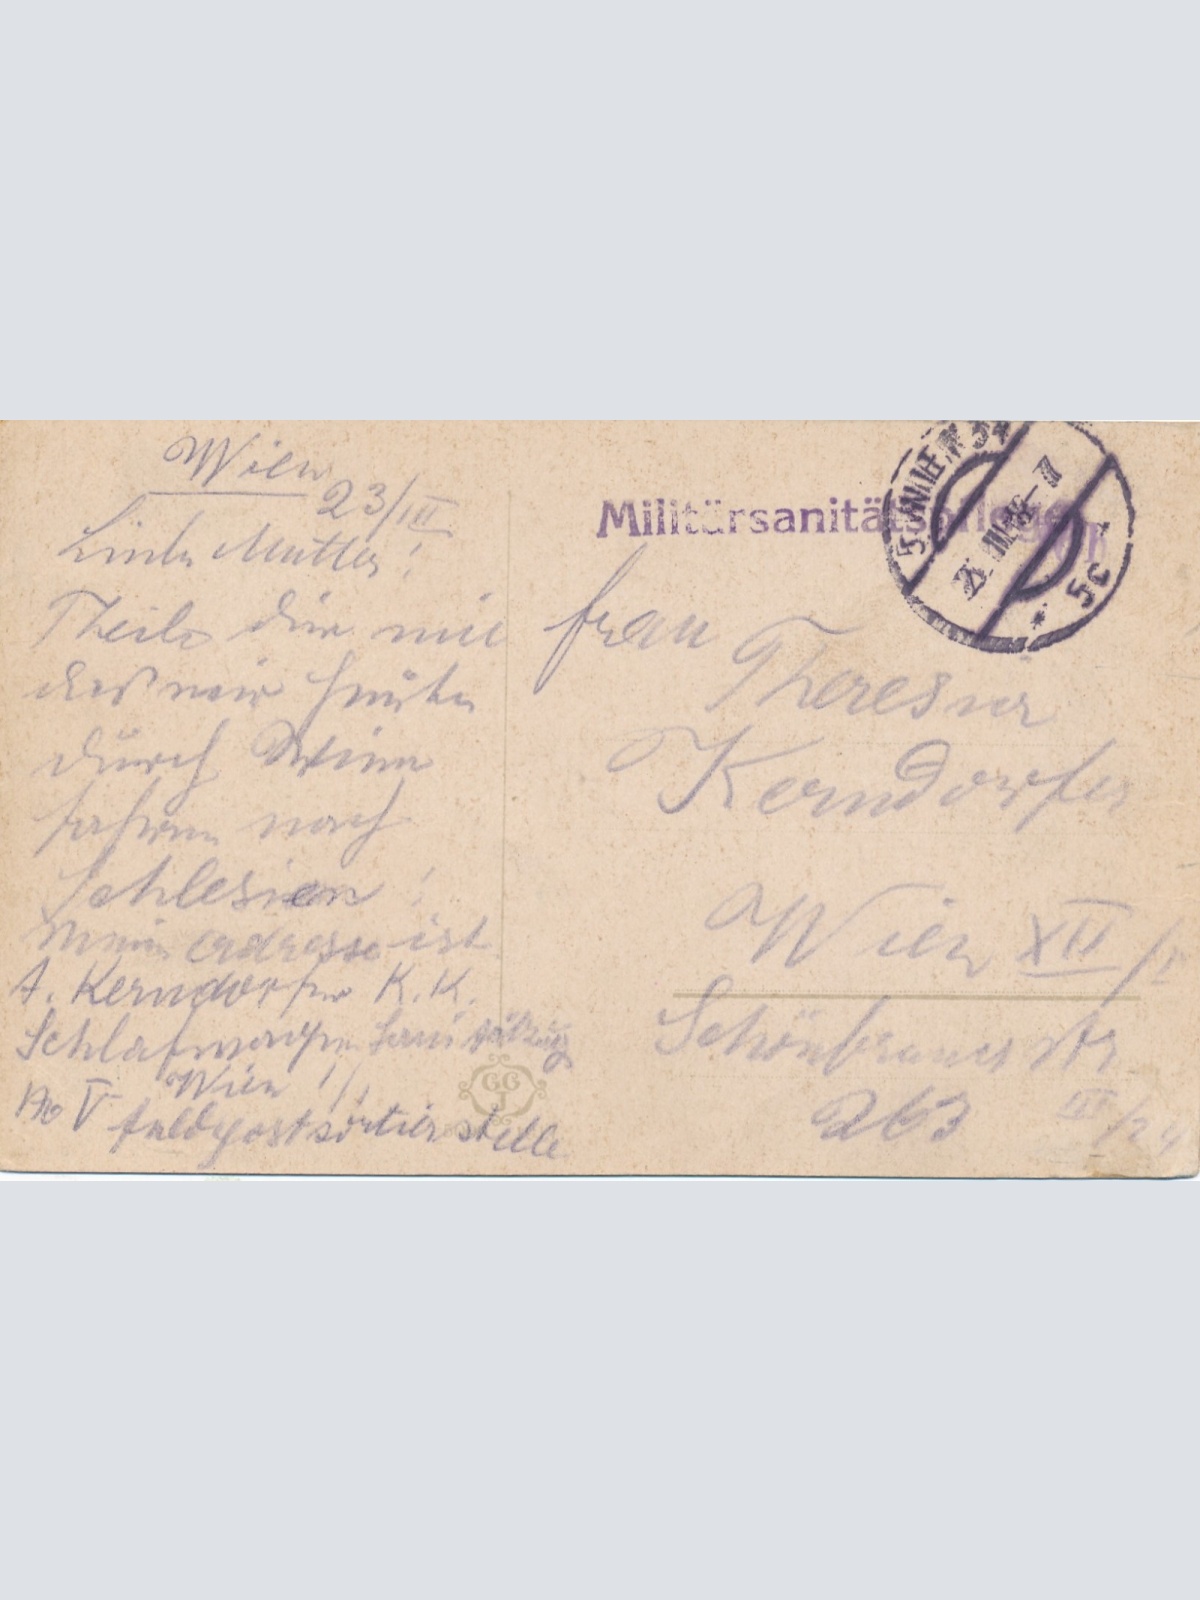 Wien
23/III
Liebe Mutter!
Theile dir mit
das wir heute
durch Wien
fahren nach
Schlesien!
Meine adresse ist
A. Kerndorfer K. K.
Schlafwagen
No V Wien 1/1
Feldpostsortierstelle
Militärsanitätspflege
5c
Frau
Theresia
Kerndorfer
Wien XII/1
Schönbrunerstr
263 III/24
GGJ